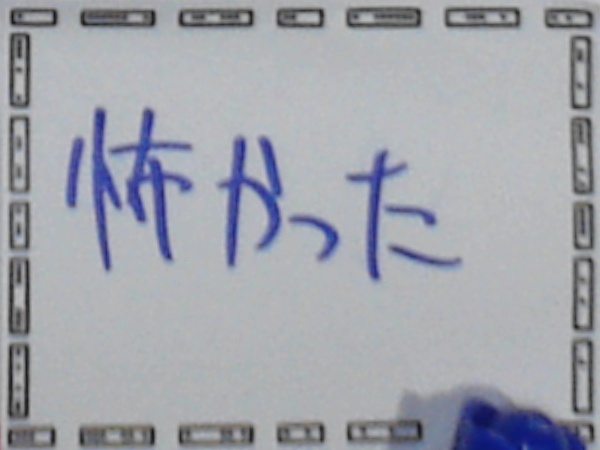 怖かった